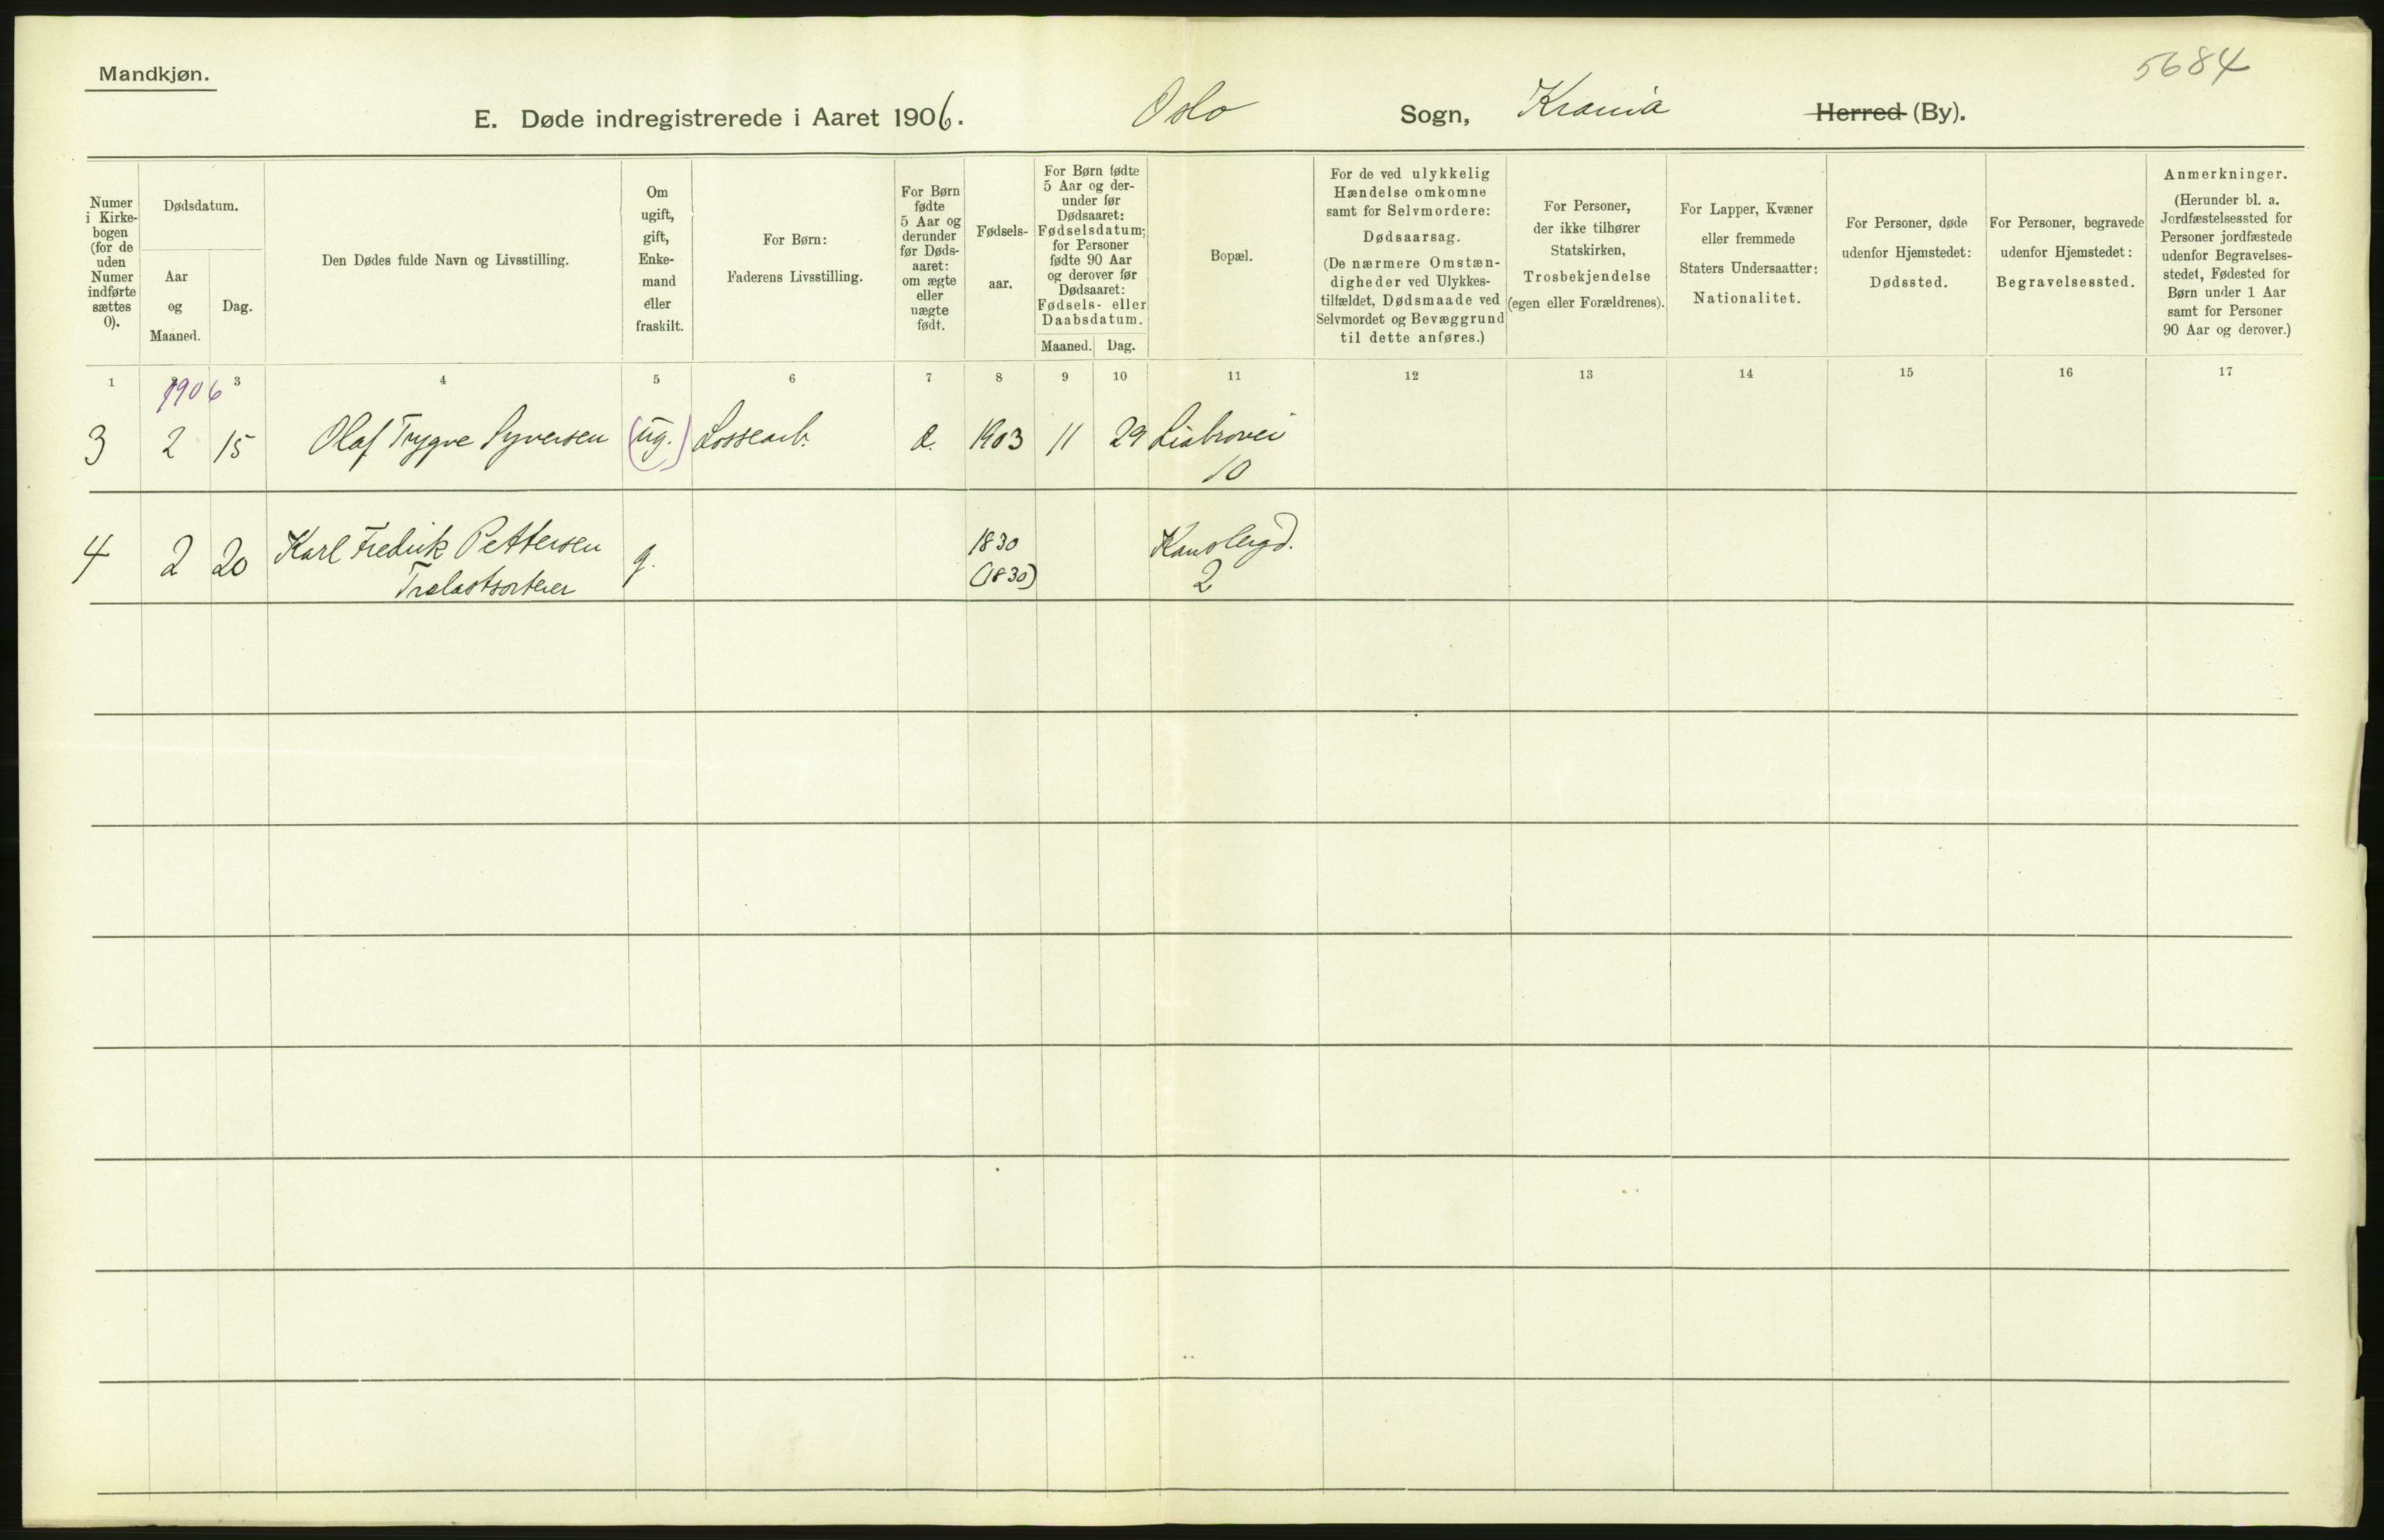 Mandkjøn.
5684
E. Døde indregistrerede i Aaret 1906. Oslo Sogn, Krania Herred (By).
Numer
i Kirke-
bogen
(for de
uden
Numer
indførte
sættes
0).
Dødsdatum.
Aar
og
Maaned.
Dag.
Den Dødes fulde Navn og Livsstilling.
Om
ugift,
gift,
Enke-
mand
eller
fraskilt.
For Børn:
Faderens Livsstilling.
For Børn
fødte
5 Aar og
derunder
før Døds-
aaret:
om ægte
eller
uægte
født.
Fødsels-
aar.
For Børn fødte
5 Aar og der-
under før
Dødsaaret:
Fødselsdatum;
for Personer
fødte 90 Aar
og derover før
Dødsaaret:
Fødsels- eller
Daabsdatum.
Maaned. Dag.
Bopæl.
For de ved ulykkelig
Hændelse omkomne
samt for Selvmordere:
Dødsaarsag.
(De nærmere Omstæn-
digheder ved Ulykkes-
tilfældet, Dødsmaade ved
Selvmordet og Bevæggrund
til dette anføres.)
For Personer,
der ikke tilhører
Statskirken,
Trosbekjendelse
(egen eller Forældrenes).
For Lapper, Kvæner
eller fremmede
Staters Undersaatter:
Nationalitet.
For Personer, døde
udenfor Hjemstedet:
Dødssted.
For Personer, begravede
udenfor Hjemstedet:
Begravelsessted.
Anmerkninger.
(Herunder bl. a.
Jordfæstelsessted for
Personer jordfæstede
udenfor Begravelses-
stedet, Fødested for
Børn under 1 Aar
samt for Personer
90 Aar og derover.)
1 3 4 5 6 7 8 9 10 11 12 13 14 15 16 17
1906
3 2 15 Olaf Trygve Syversen (ug.) Lossearb. 1903 11 29 Liabrovei
10
4 2 20 Karl Fredrik Pettersen g. 1830
Trælastsorterer (1830) 2